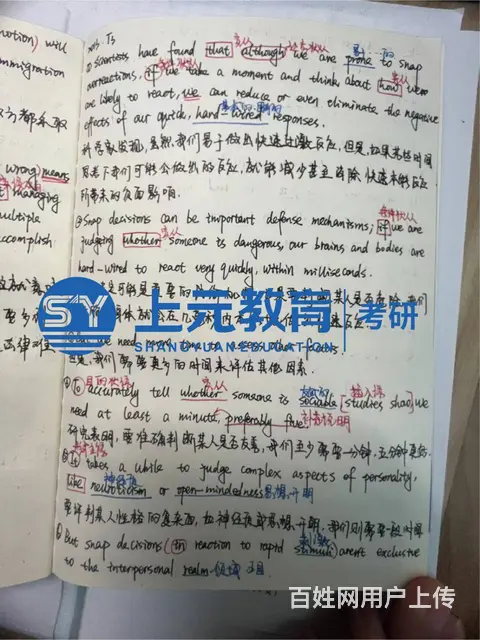 notion) will
immigration
wrong) means
managing
multiple
accomplish.
T3
宾从 让步状从 易…的
Scientists have found that although we are prone to snap
条件状从 宾从
overreactions, if we take a moment and think about how we
are likely to react, we can reduce or even eliminate the negative
effects of our quick, hard-wired responses.
科学家发现,虽然我们易于做出快速过激反应,但是,如果花些时间
思考下我们可能会做出的反应,就能减少甚至消除快速本能反应
所带来的负面影响.
条件状从
② Snap decisions can be important defense mechanisms; if we are
宾从
judging whether someone is dangerous, our brains and bodies are
hard-wired to react very quickly, within milliseconds.
SY 上元教育 考研
SHANGYUAN EDUCATION
we need more time to assess other factors.
但是,我们需要更多的时间来评估其他因素.
目的状语 宾从 插入语
To accurately tell whether someone is sociable [studies show] we
need at least a minute, preferably five.
研究表明,要准确判断某人是否友善,我们至少需要一分钟,五分钟更好.
It takes a while to judge complex aspects of personality,
神经质
like neuroticism or open-mindedness 思想开明
要评判某人性格的复杂面,如神经质或思想开明,我们则需要一段时间
刺激
But snap decisions (in reaction to rapid stimuli) aren't exclusive
to the interpersonal realm 领域
百姓网用户上传